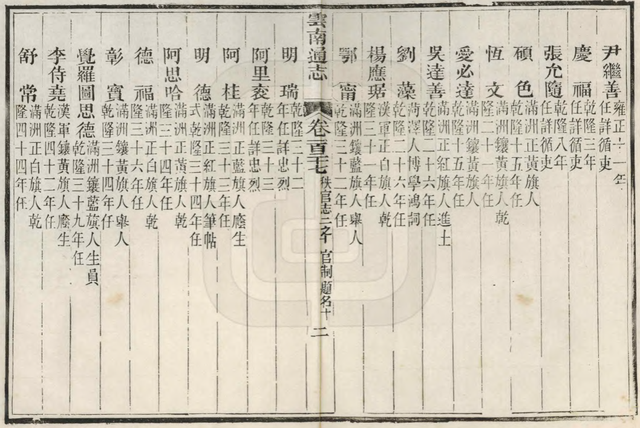 尹繼善 雍正十一年任詳循吏
慶福 乾隆三年任詳循吏
張允隨 乾隆八年任詳循吏
碩色 滿洲正黃旗人乾隆十五年任
恆文 滿洲鑲黃旗人乾隆二十一年任
愛必達 滿洲鑲黃旗人乾隆十五年任
吳達善 滿洲正紅旗人進士乾隆二十六年任
劉藻 菏澤人博學鴻詞乾隆二十六年任
楊應琚 漢軍正白旗人乾隆三十一年任
鄂甯 滿洲鑲藍旗人舉人乾隆三十二年任
雲南通志 卷百二十七 秩官志二之十 官制題名十 二
明瑞 乾隆三十二年任詳忠烈
阿里衮 乾隆三十三年任詳忠烈
阿桂 滿洲正藍旗人廕生乾隆三十三年任
明德 滿洲正紅旗人筆帖式乾隆三十四年任
阿思哈 滿洲正黃旗人乾隆三十四年任
德福 滿洲正白旗人乾隆三十六年任
彰寶 滿洲鑲黃旗人舉人乾隆三十四年任
覺羅圖思德 滿洲鑲藍旗人生員乾隆三十九年任
李侍堯 漢軍鑲黃旗人廕生乾隆四十二年任
舒常 滿洲正白旗人乾隆四十四年任